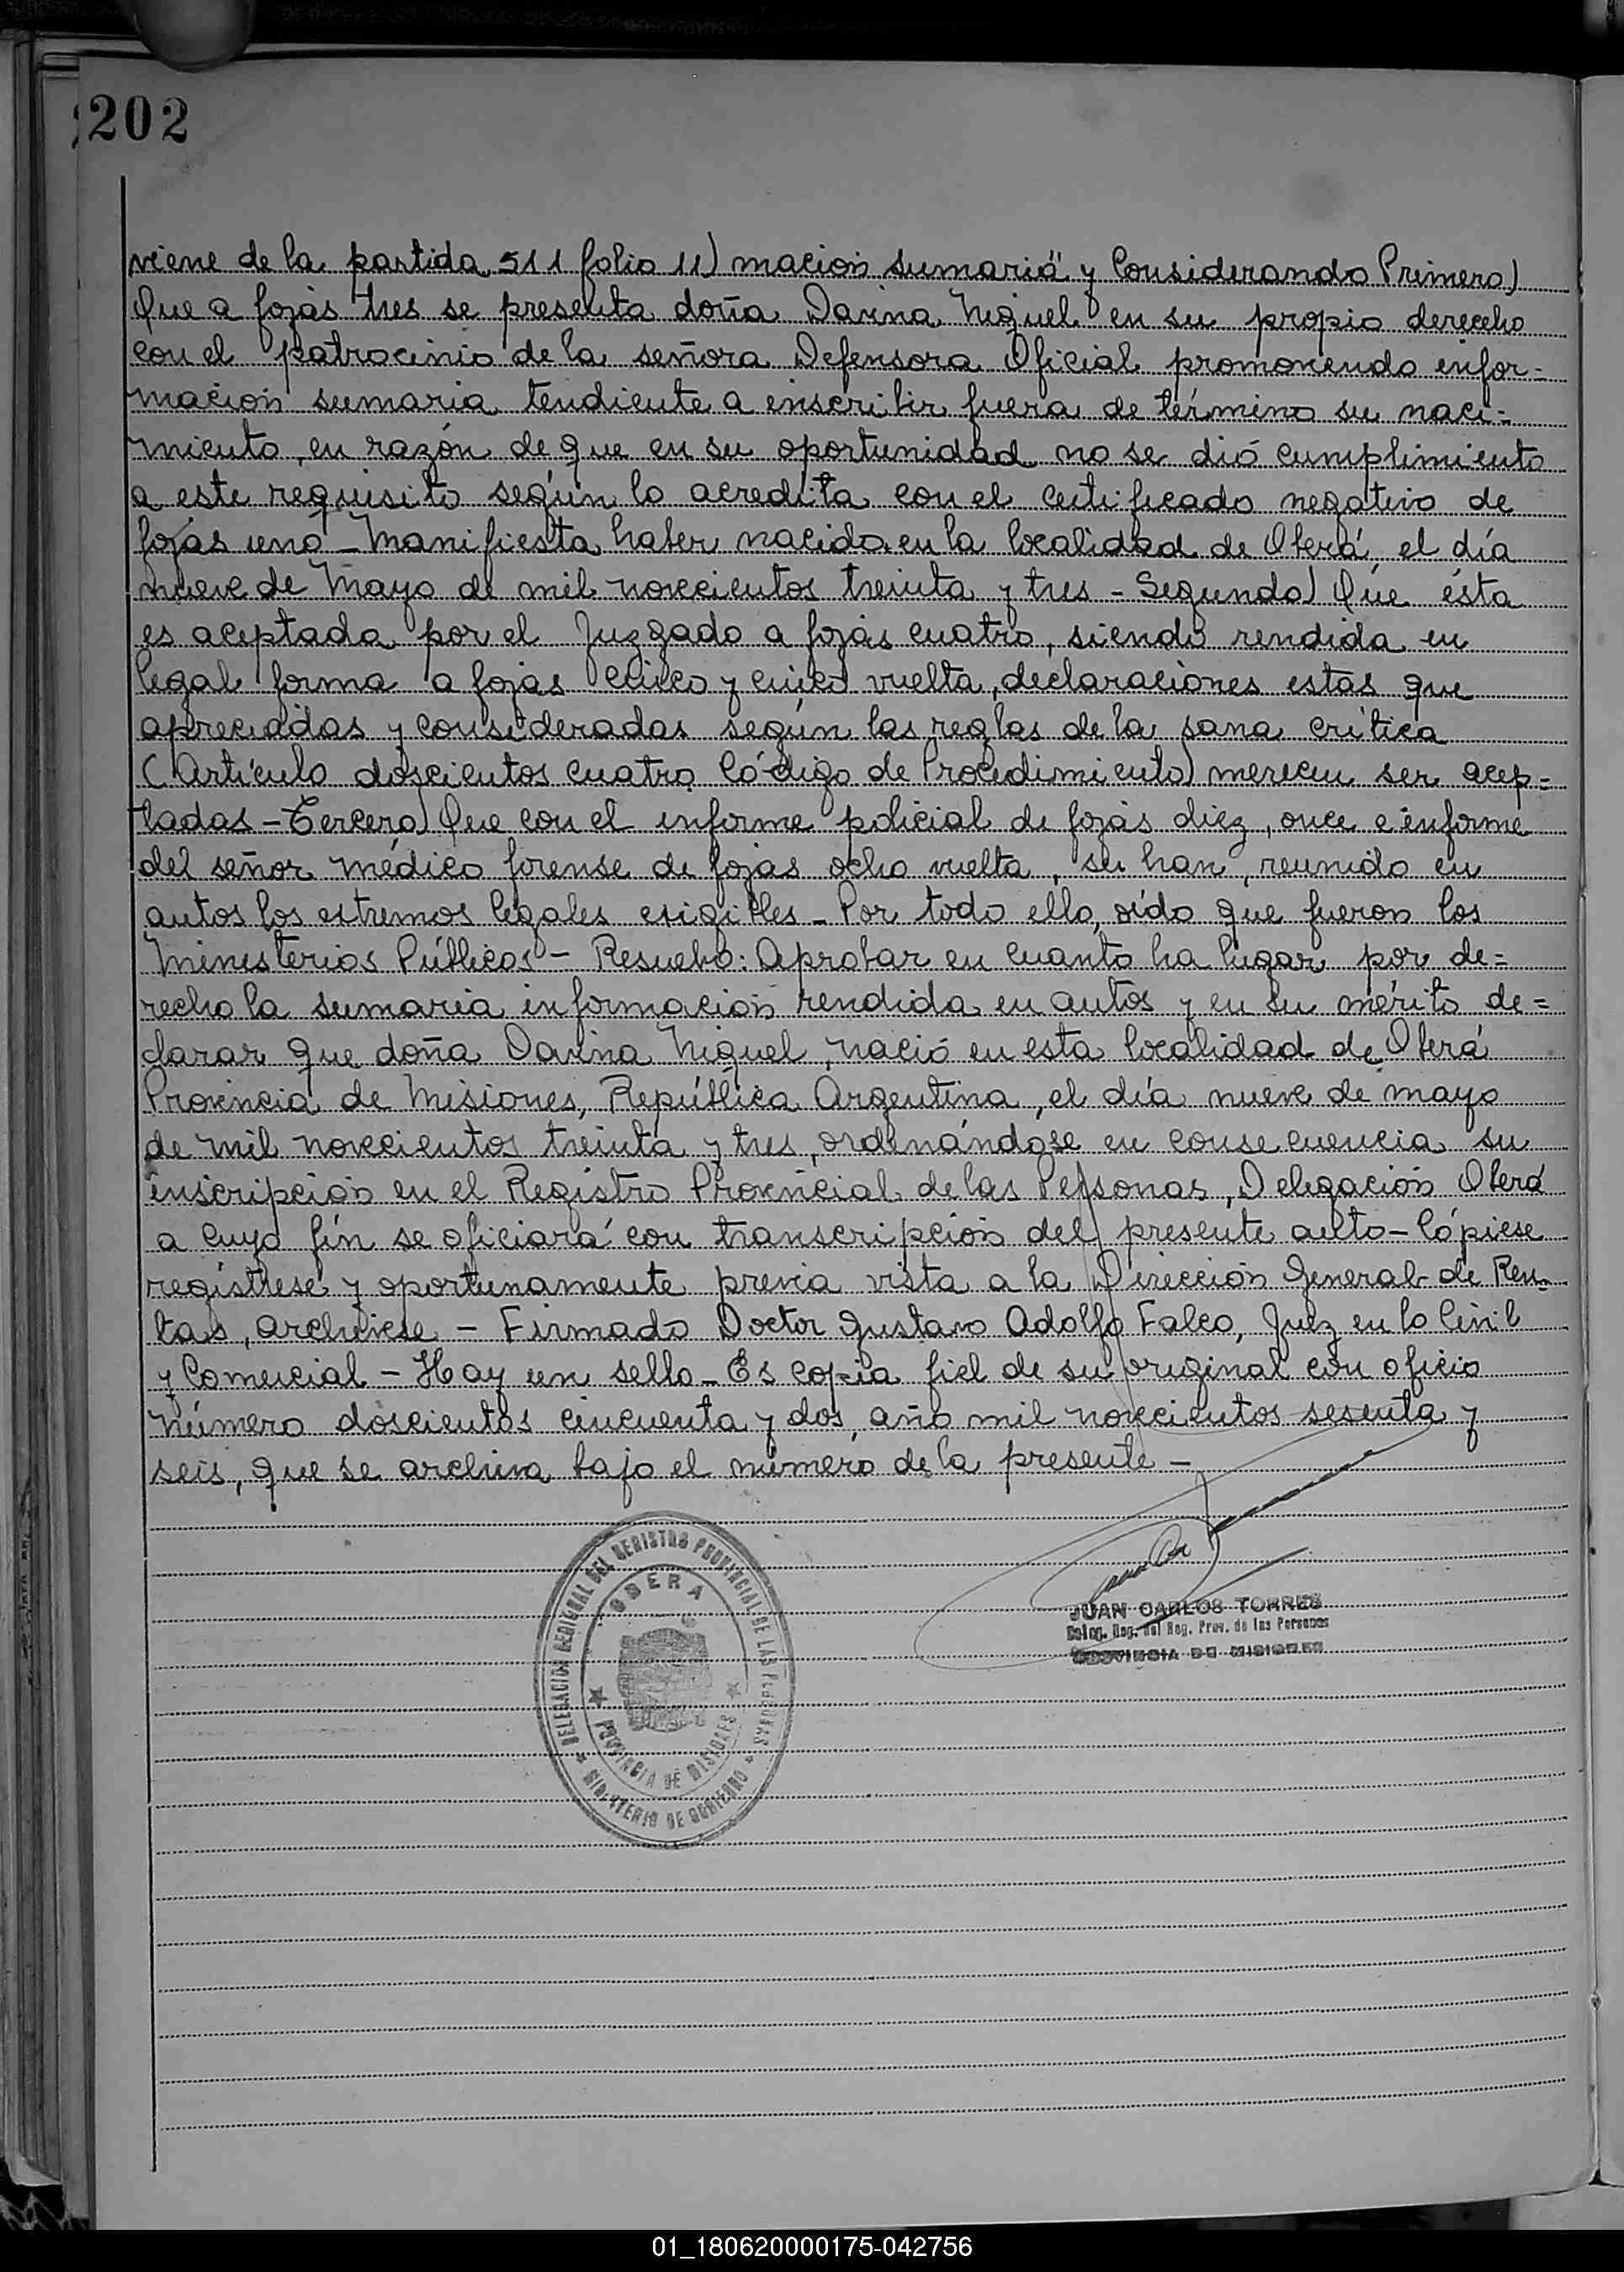 202
viene de la partida 511 folio 11) macion sumaria" y Considerando Primero)
Que a fojas tres se presenta doña Davina Niguel en su propio derecho
con el patrocinio de la señora Defensora Oficial promoviendo infor=
macion sumaria tendiente a inscribir fuera de término su naci=
miento, en razón de que en su oportunidad no se dió cumplimiento
a este requisito según lo acredita con el certificado negativo de
fojas uno - Manifiesta haber nacido en la localidad de Oberá el día
nueve de Mayo de mil novecientos treinta y tres - Segundo) Que ésta
es aceptada por el Juzgado a fojas cuatro, siendo rendida en
legal forma a fojas cinco y cinco vuelta, declaraciones estas que
apreciadas y consideradas según las reglas de la sana crítica
(Artículo doscientos cuatro Código de Procedimiento) merecen ser acep=
tadas - Tercero) Que con el informe policial de fojas diez, once e informe
del señor médico forense de fojas ocho vuelta, se han, reunido en
autos los estremos legales exigibles - Por todo ello, oído que fueron los
Ministerios Públicos - Resuelvo: Aprobar en cuanto ha lugar por de=
recho la sumaria informacion rendida en autos y en su mérito de=
clarar que doña Davina Niguel, nació en esta localidad de Oberá
Provincia de Misiones, República Argentina, el día nueve de mayo
de mil novecientos treinta y tres, ordenándose en consecuencia su
inscripción en el Registro Provincial de las Personas, Delegación Oberá
a cuyo fín se oficiará con transcripción del presente auto - Cópiese
regístrese y oportunamente previa vista a la Dirección General de Ren=
tas, archivese - Firmado Doctor Gustavo Adolfo Falco, Juez en lo Civil
y Comercial - Hay un sello - Es copia fiel de su original con oficio
número doscientos cincuenta y dos, año mil novecientos sesenta y
seis, que se archiva bajo el número de la presente -
DELEGACION REGIONAL DEL REGISTRO PROVINCIAL DE LAS PERSONAS
OBERA
PROVINCIA DE MISIONES
MINISTERIO DE GOBIERNO
JUAN CARLOS TORRES
Deleg. Reg. del Reg. Prov. de las Personas
PROVINCIA DE MISIONES
01_180620000175-042756